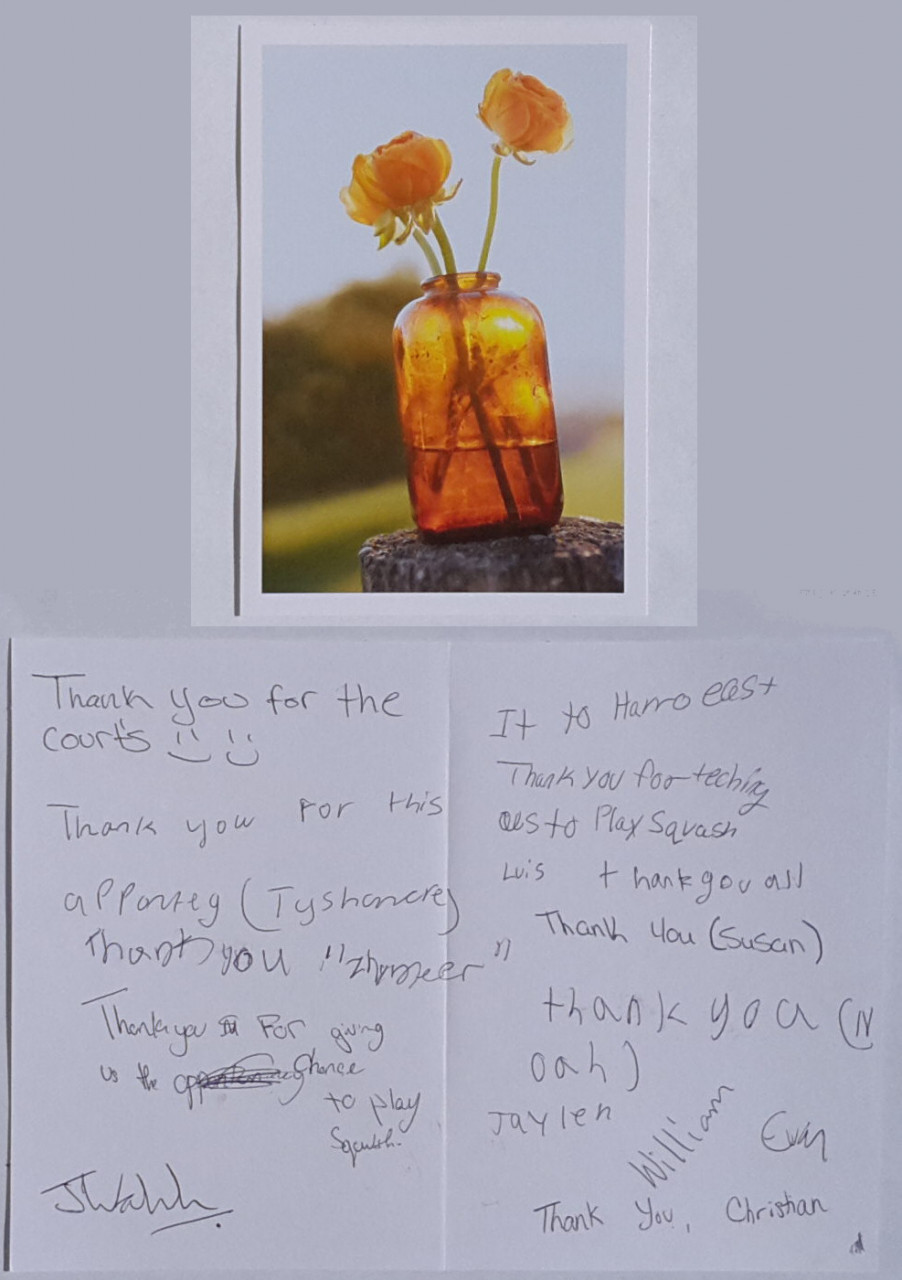 Thank you for the
courts
Thank you For this
(Tyshancre)
Thank you
Thank you For giving
us the Chance
to play
Squash.
It to Harro east
Thank you for teching
to Play Squash
Luis thank you all
Thank You (Susan)
thank you (N
oah)
Jaylen
William
Evan
Thank You, Christian